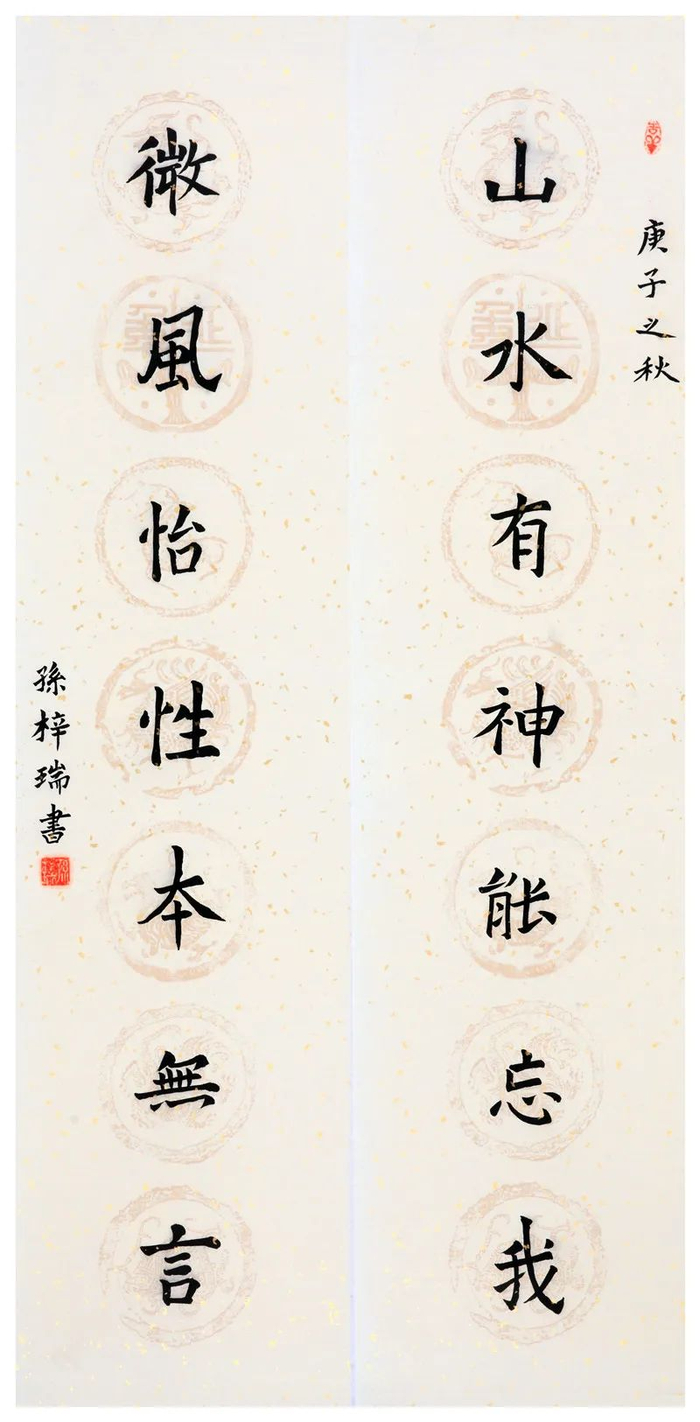 庚子之秋
山水有神能忘我
微風怡性本無言
孫梓瑞書